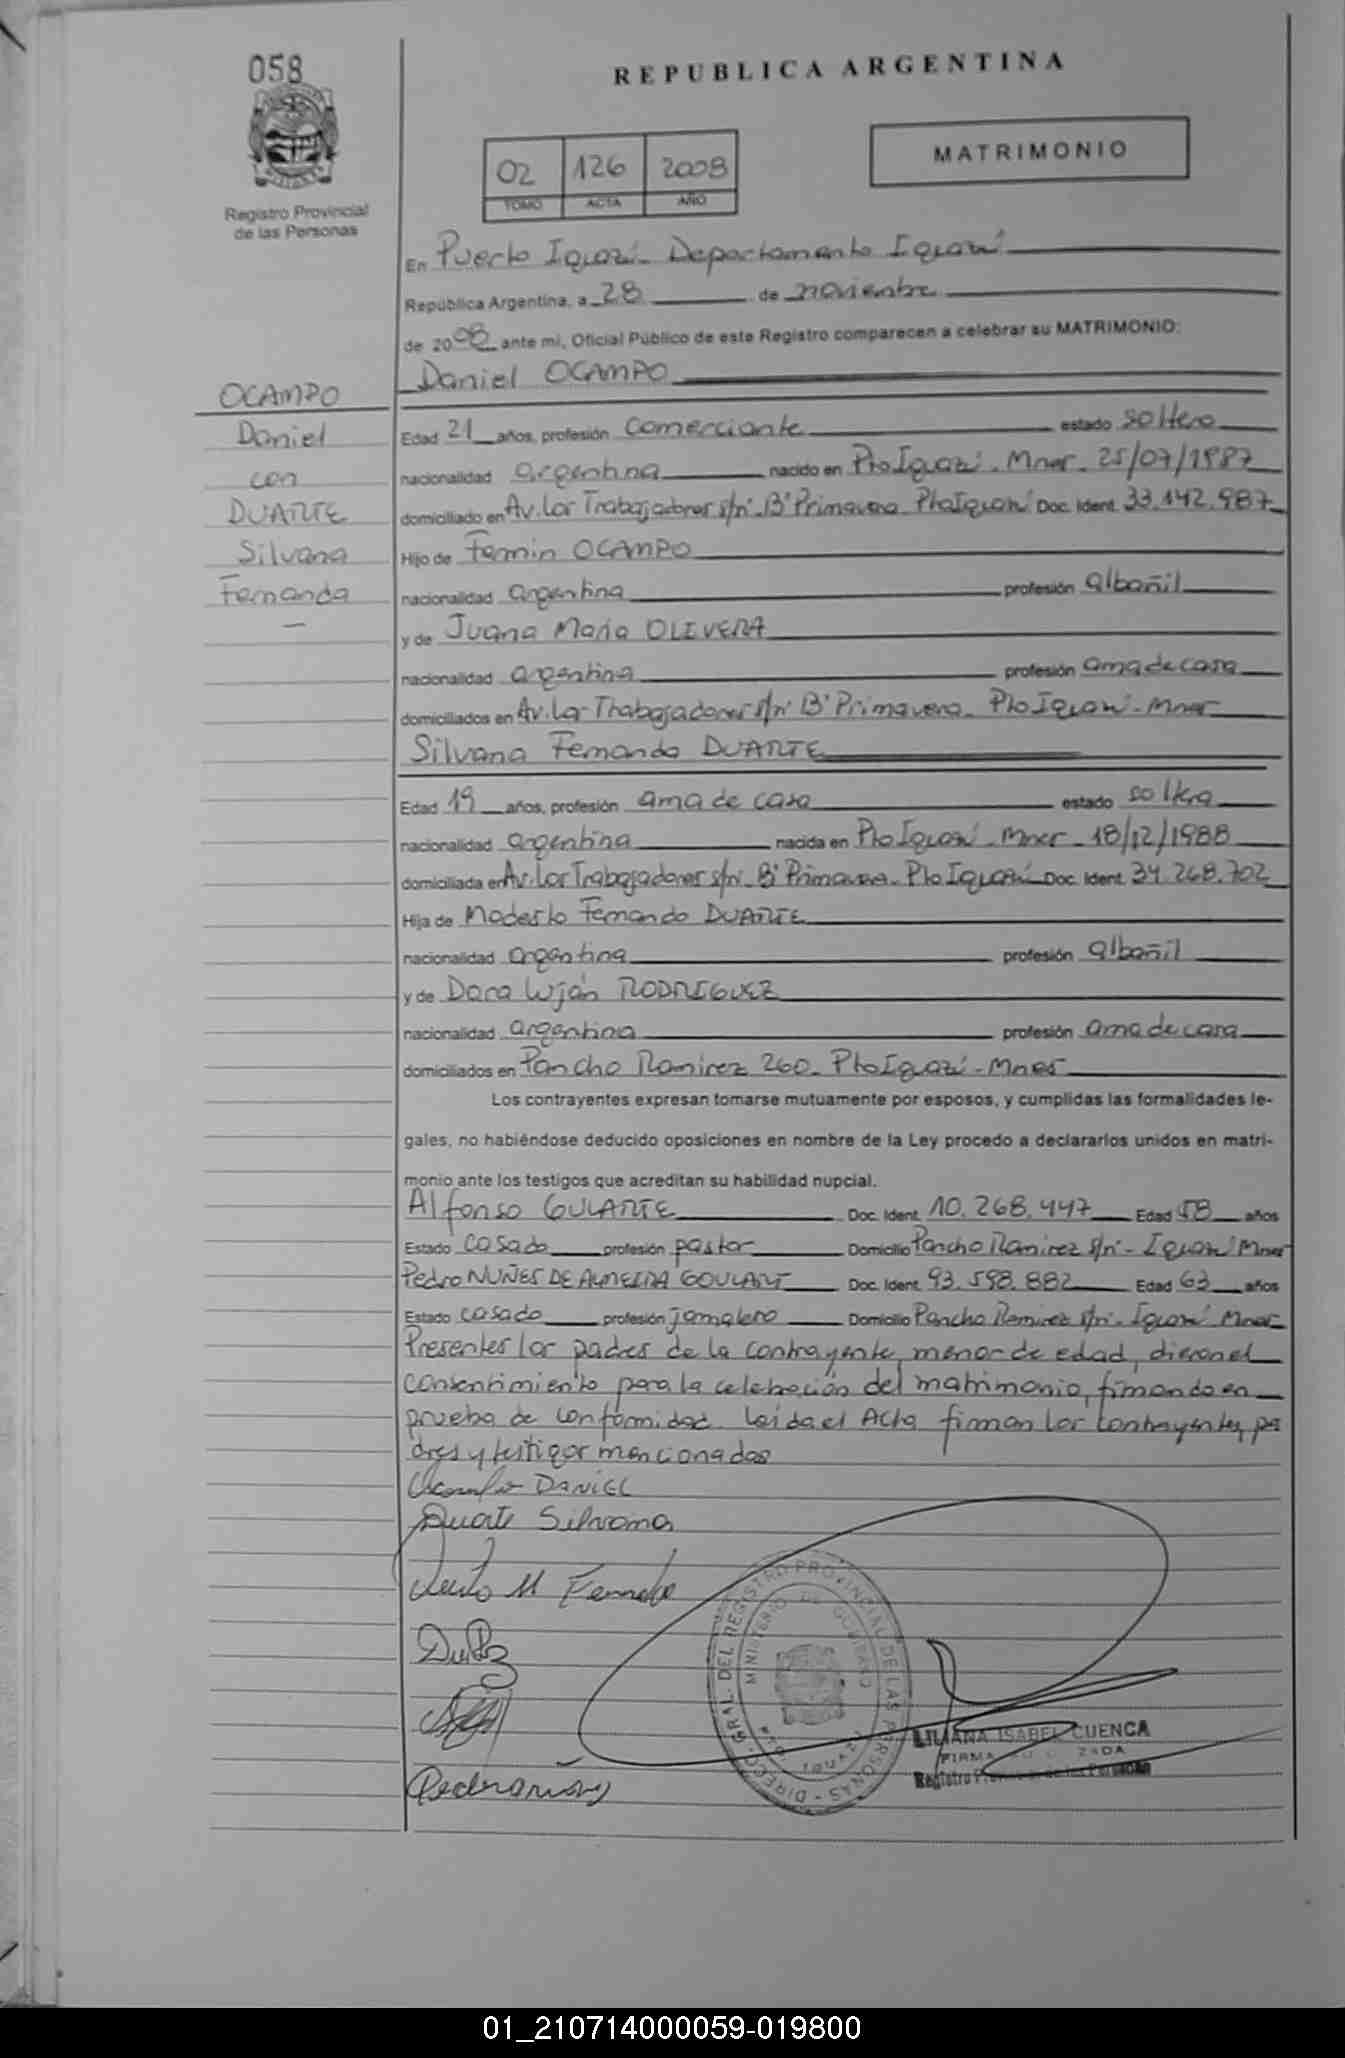 058
REPUBLICA ARGENTINA
02 126 2008
TOMO ACTA AÑO
MATRIMONIO
Registro Provincial
de las Personas
En Puerto Iguazú - Departamento Iguazú
República Argentina, a 28 de noviembre
de 2008 ante mi, Oficial Público de este Registro comparecen a celebrar su MATRIMONIO:
Daniel OCAMPO
OCAMPO
Daniel
con
DUARTE
Silvana
Fernanda
Edad 21 años, profesión comerciante estado soltero
nacionalidad argentina nacido en Pto Iguazú - Mnes - 25/07/1987
domiciliado en Av. Los Trabajadores s/nº Bº Primavera Pto Iguazú Doc. Ident. 33.142.987
Hijo de Fermin OCAMPO
nacionalidad argentina profesión albañil
y de Juana Maria OLIVERA
nacionalidad argentina profesión ama de casa
domiciliados en Av. Los Trabajadores s/nº Bº Primavera - Pto Iguazú - Mnes
Silvana Fernanda DUARTE
Edad 19 años, profesión ama de casa estado soltera
nacionalidad argentina nacida en Pto Iguazú - Mnes - 18/12/1988
domiciliada en Av. Los Trabajadores s/nº - Bº Primavera - Pto Iguazú Doc. Ident. 34.268.702
Hija de Modesto Fernando DUARTE
nacionalidad argentina profesión albañil
y de Dora Luján RODRIGUEZ
nacionalidad argentina profesión ama de casa
domiciliados en Pancho Ramirez 260 - Pto Iguazú - Mnes
Los contrayentes expresan tomarse mutuamente por esposos, y cumplidas las formalidades le-
gales, no habiéndose deducido oposiciones en nombre de la Ley procedo a declararlos unidos en matri-
monio ante los testigos que acreditan su habilidad nupcial.
Alfonso GULARTE Doc. Ident. 10.268.447 Edad 58 años
Estado casado profesión pastor Domicilio Pancho Ramirez s/nº - Iguazú Mnes
Pedro NUÑES DE ALMEIDA GOULART Doc. Ident. 93.598.882 Edad 63 años
Estado casado profesión jornalero Domicilio Pancho Ramirez s/nº - Iguazú Mnes
Presentes los padres de la contrayente, menor de edad, dieron el
consentimiento para la celebración del matrimonio, firmando en
prueba de conformidad. Leida el Acta firman los contrayentes, pa
dres y testigos mencionados
Ocampo DANIEL
Duarte Silvana
DIRECC. GRAL. DEL REGISTRO PROVINCIAL DE LAS PERSONAS
MINISTERIO DE GOBIERNO
PTO. IGUAZU
LILIANA ISABEL CUENCA
01_210714000059-019800